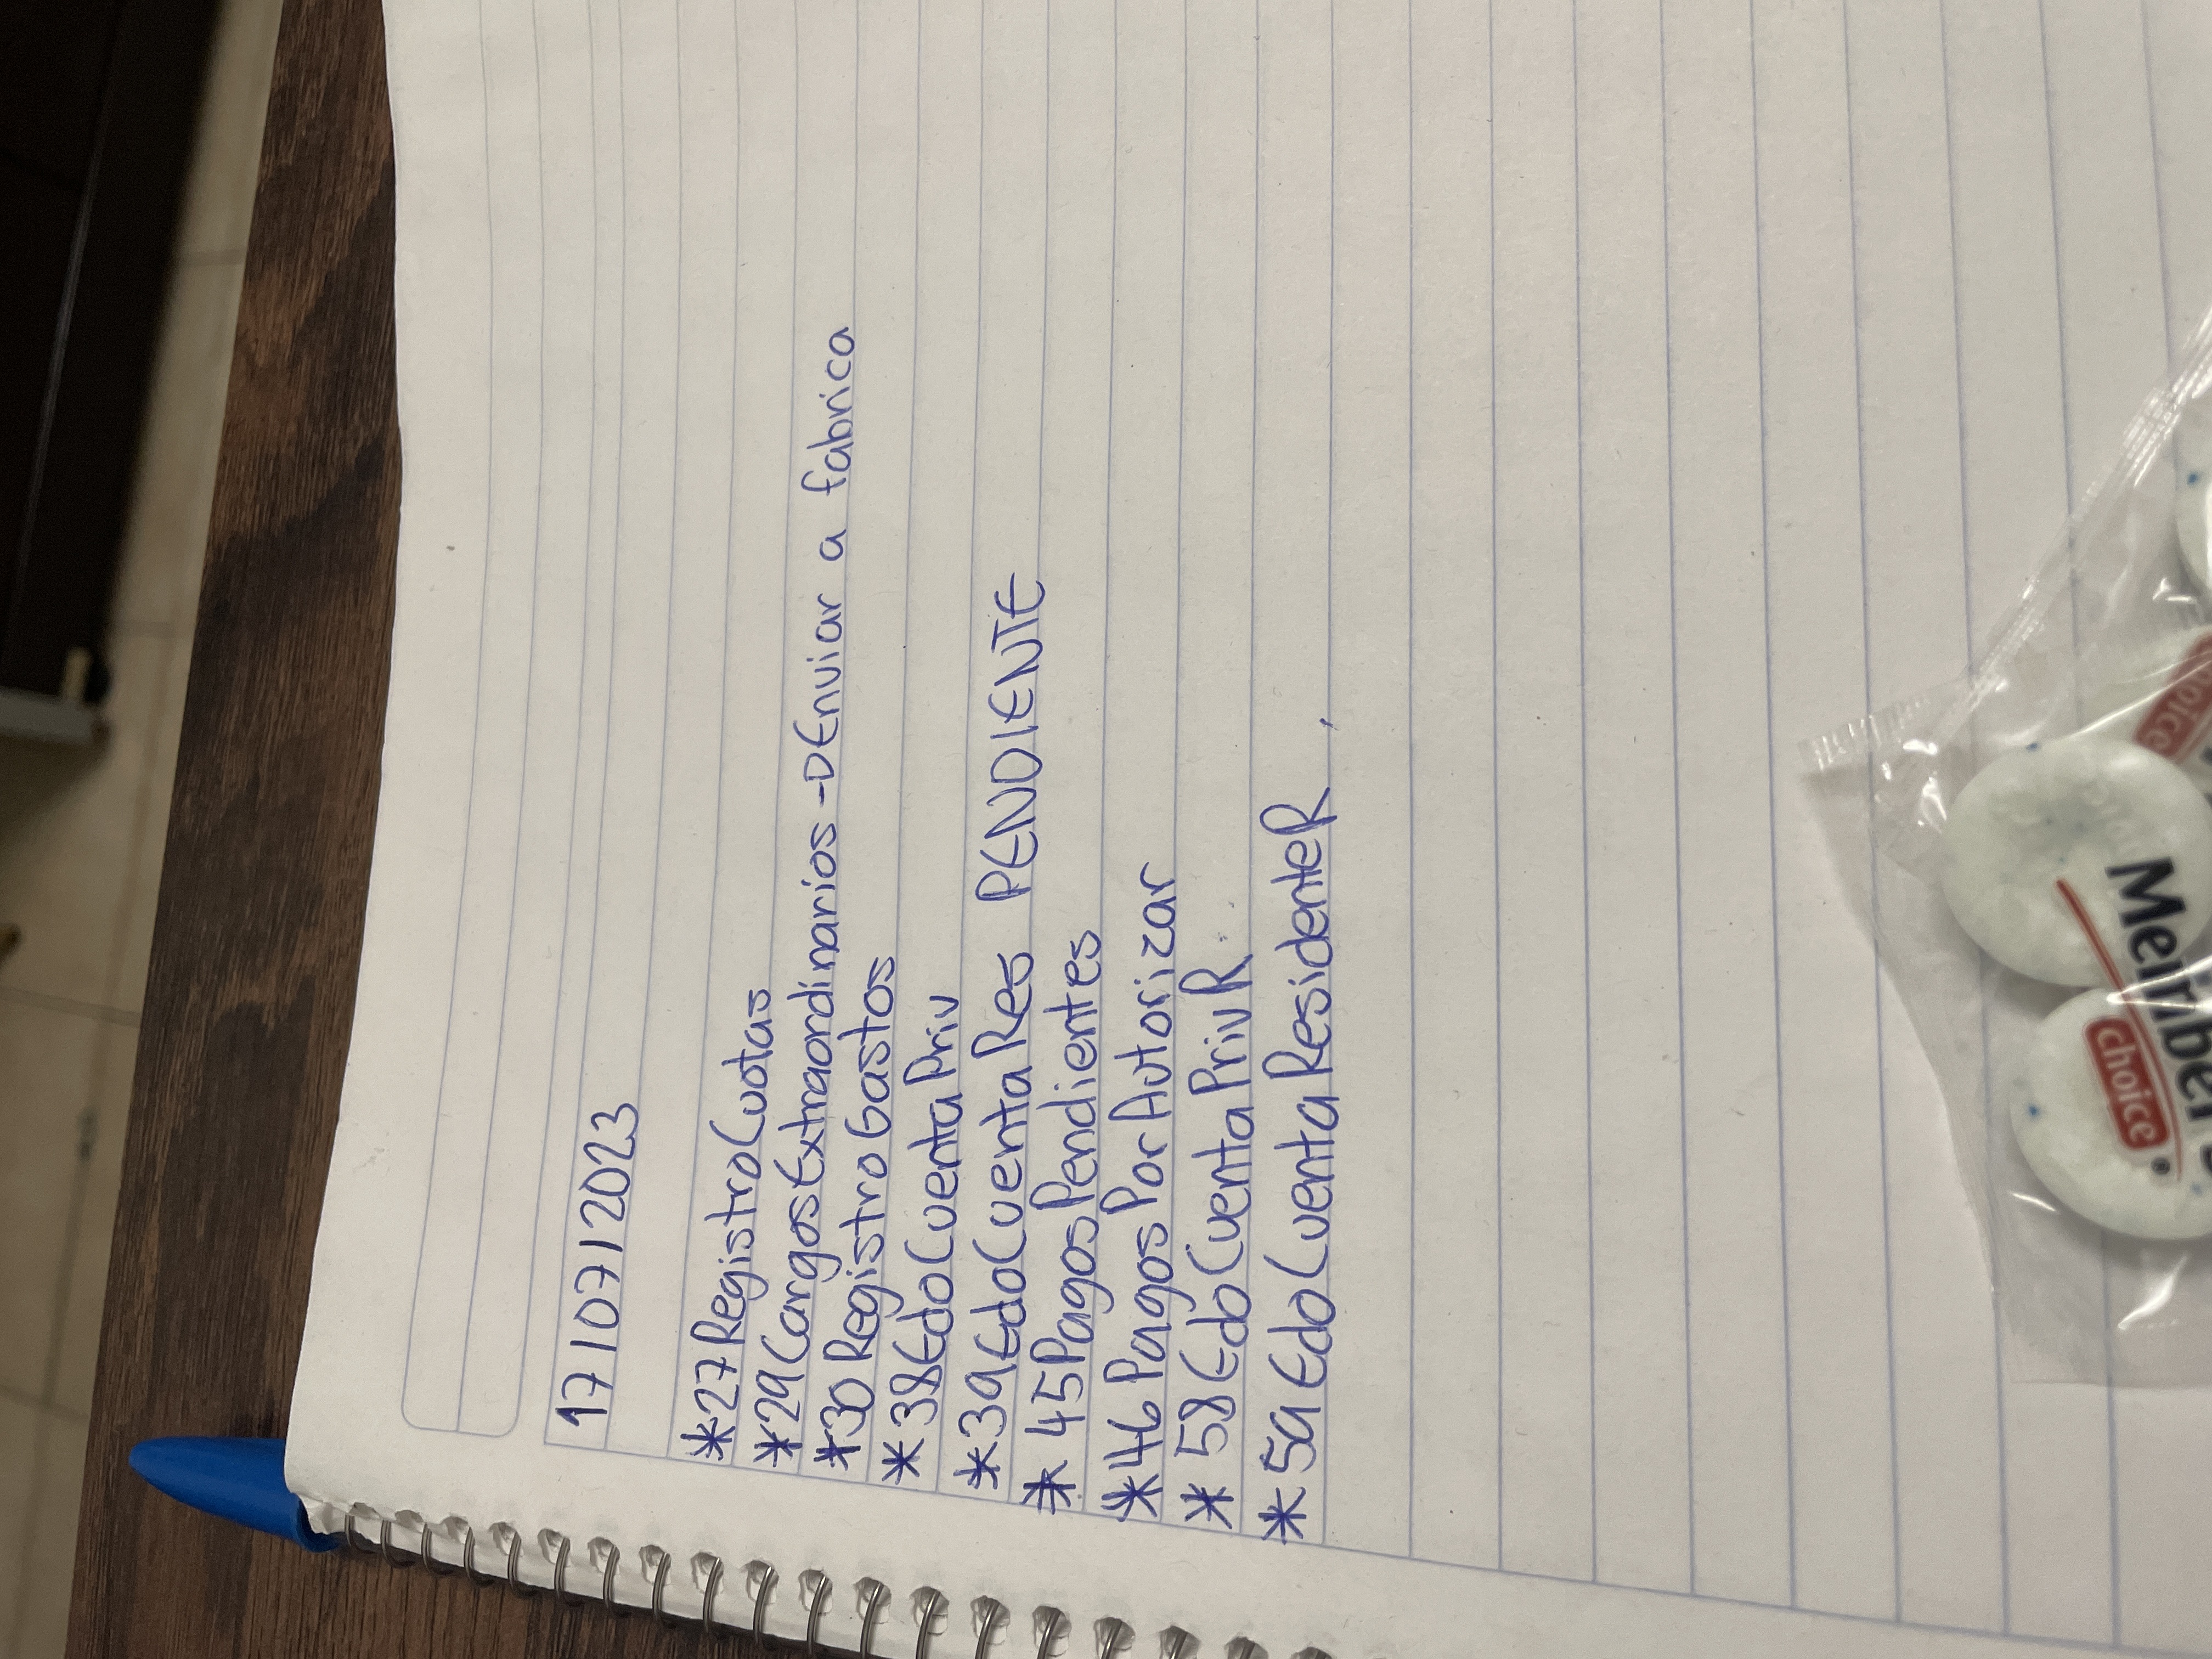 17/07/2023
*27RegistroCuotas
*29CargosExtraordinarios-DEnviar a fabrica
*30RegistroGastos
*38EdoCuentaPriv
*39EdoCuentaRes PENDIENTE
*45PagosPendientes
*46PagosPorAutorizar
*58EdoCuentaPrivR
*59EdoCuentaResidenteR
Member's
choice®
choice